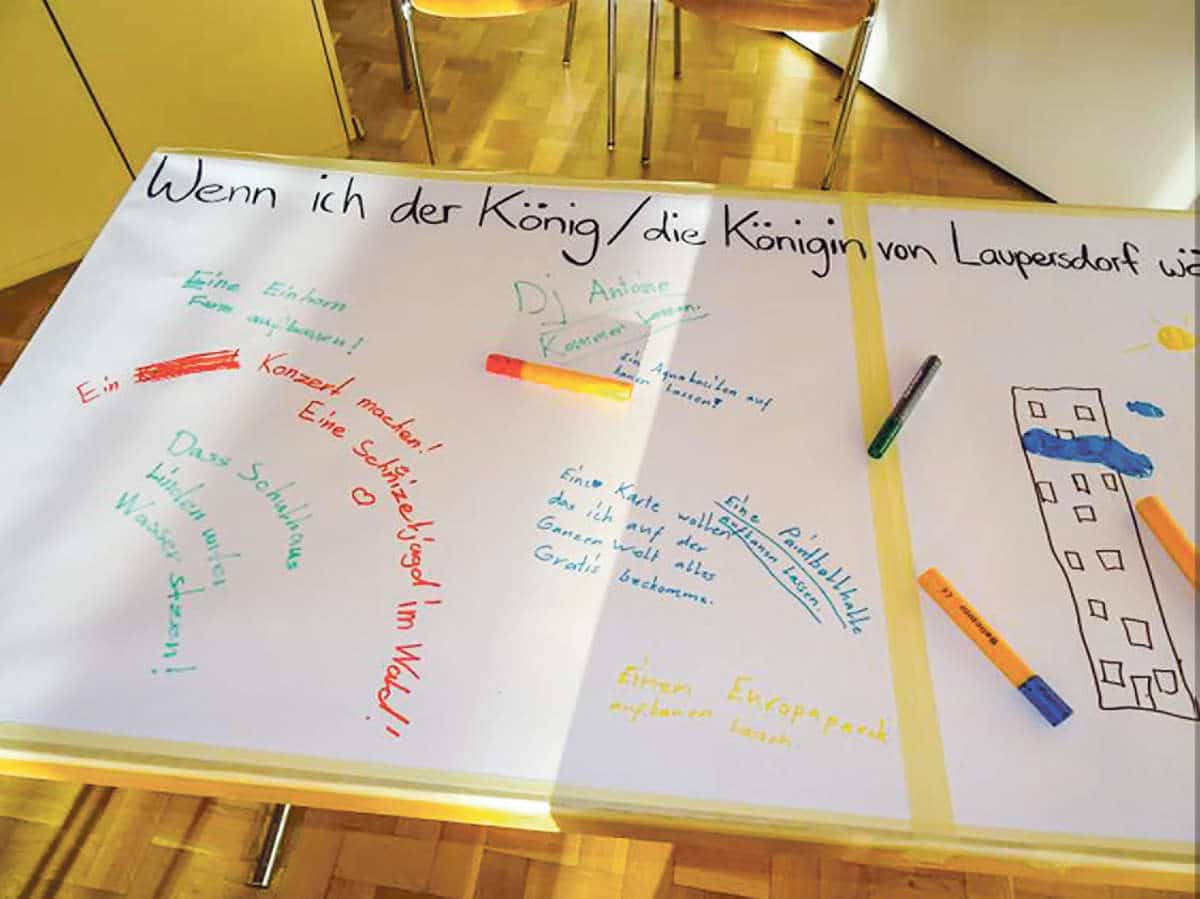 Wenn ich der König/die Königin von Laupersdorf wä
Eine Einhorn
Farm aufbauen!
Dj Antoine
Kommen lassen.
Ein Konzert machen!
Eine Schnizeljagd im Wald!
Dass Schulhaus
unter
Wasser
Ein auf
bauen lassen!
Eine Karte wollen
das ich auf der
Ganzen Welt alles
Gratis bekomme.
Eine Paintballhalle
aufbauen lassen.
Einen Europapark
aufbauen lassen.